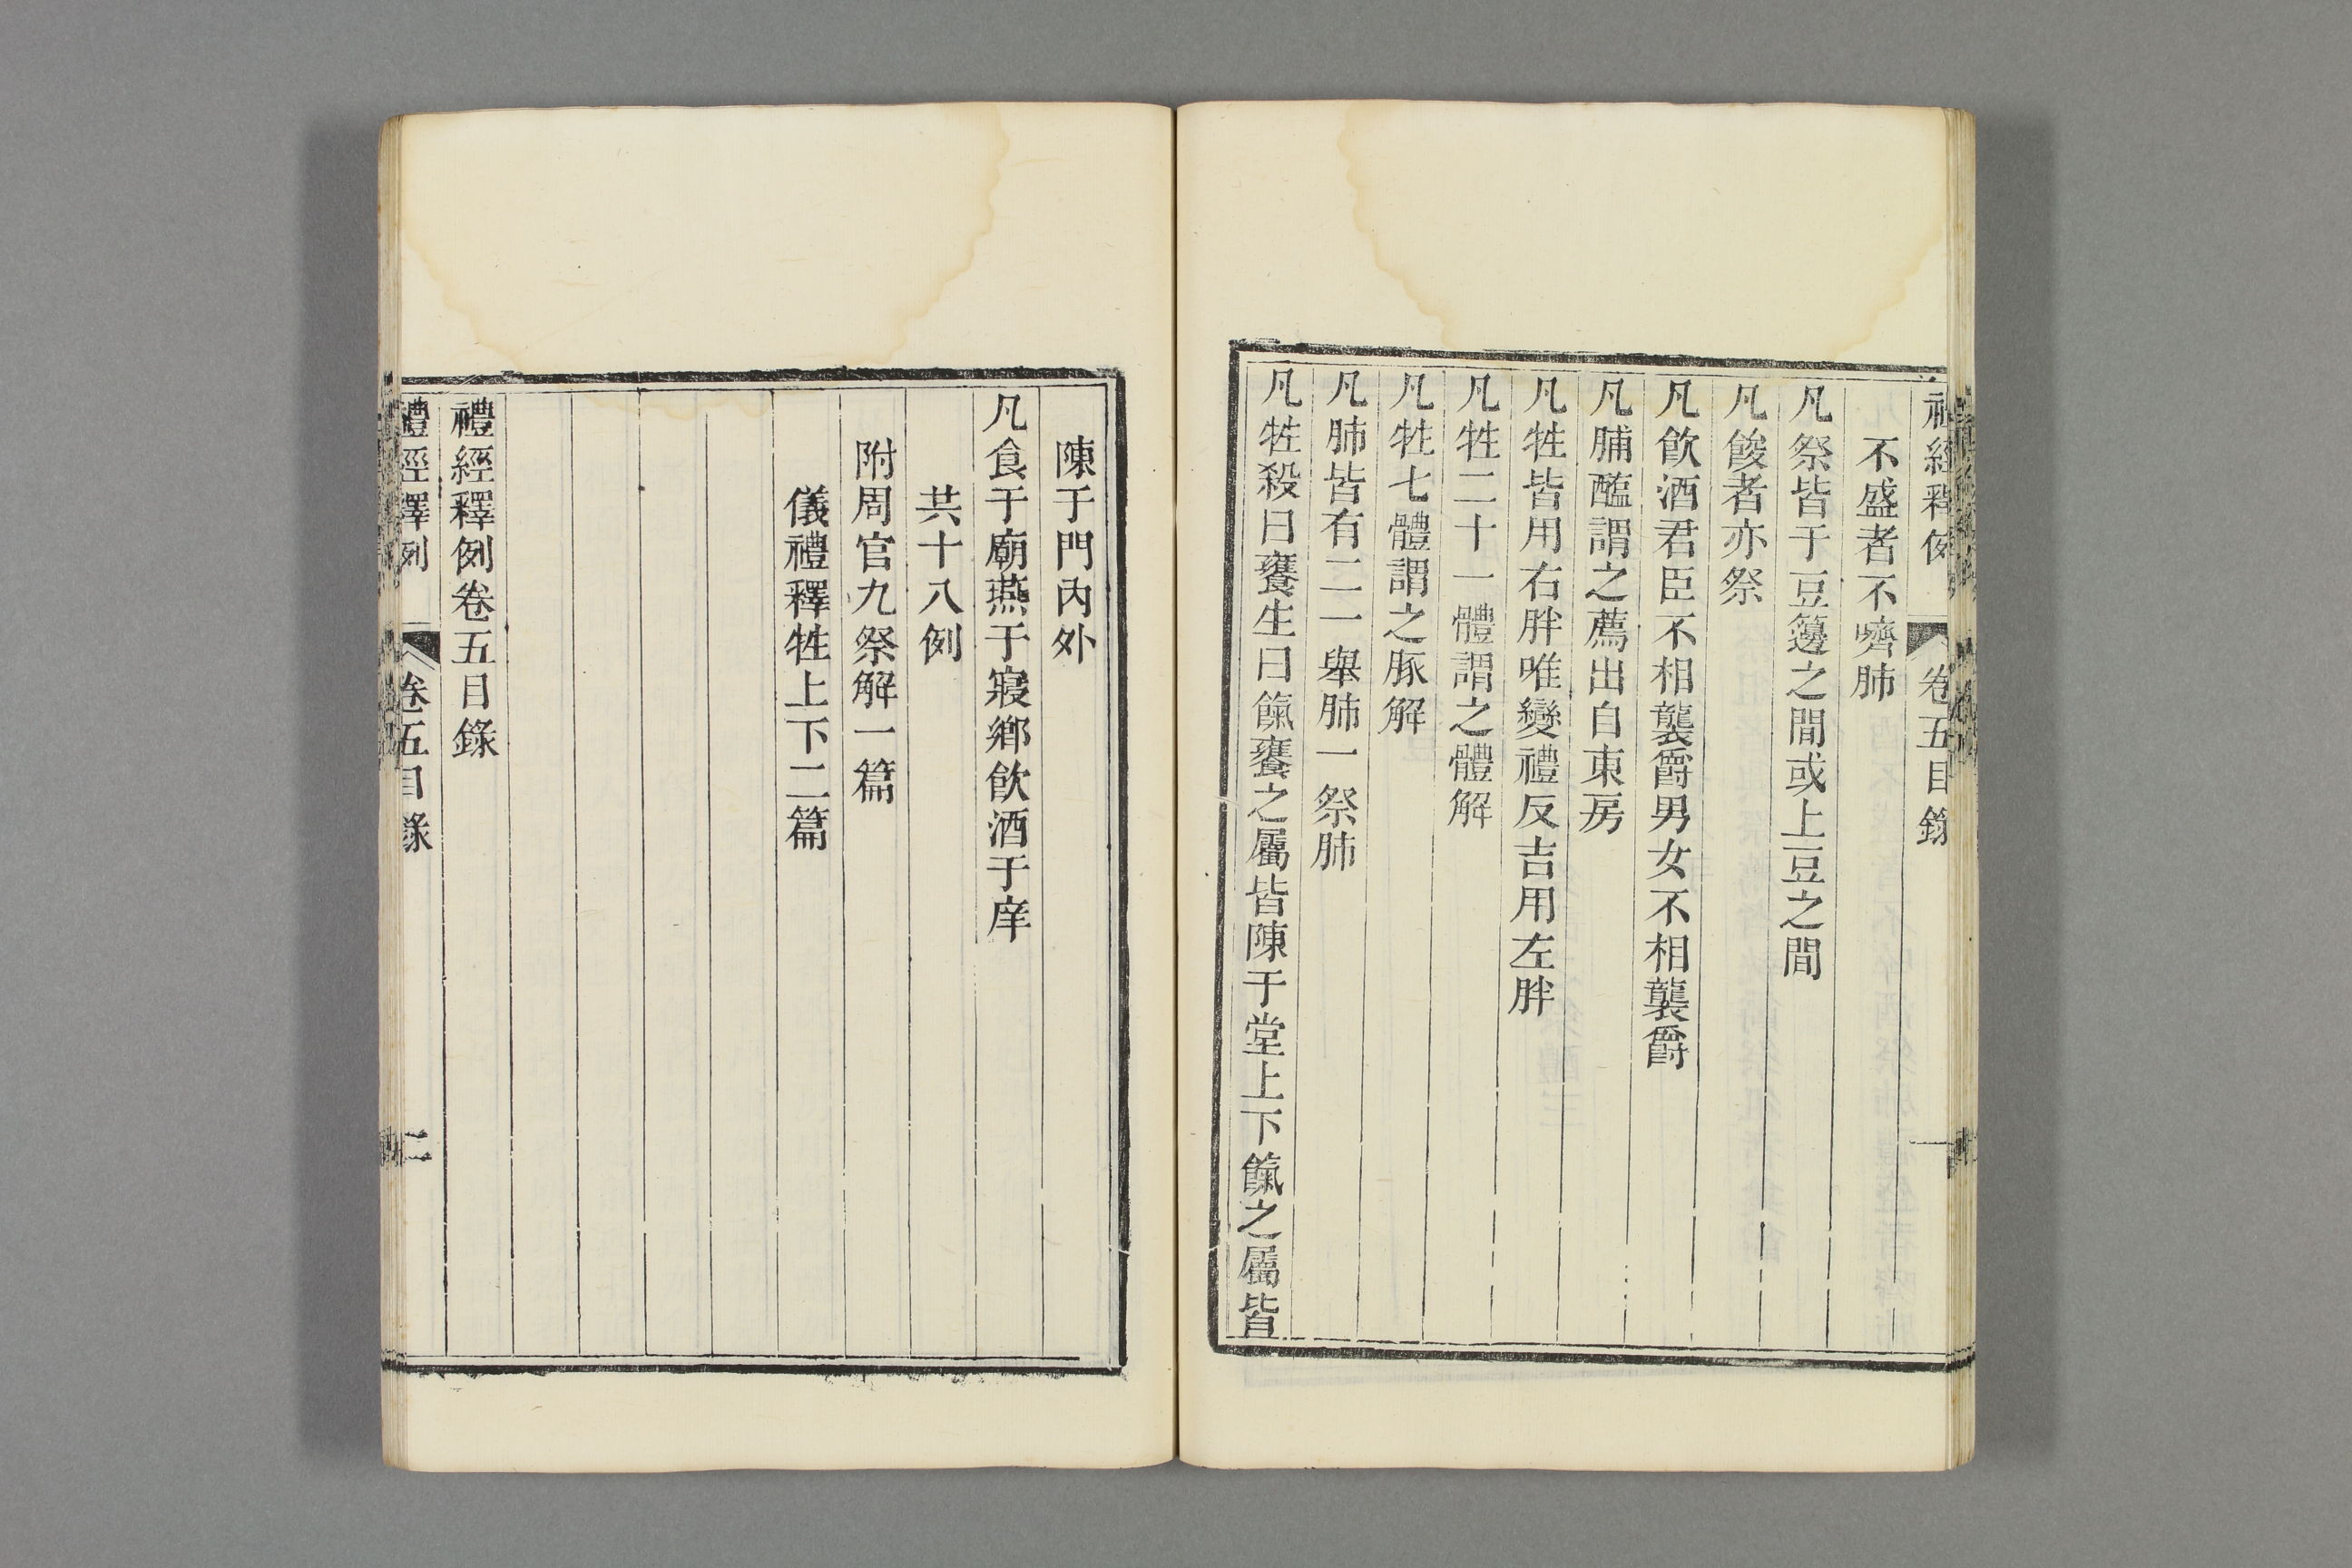 禮經釋例 卷五目錄 一
不盛者不嚌肺
凡祭皆于豆籩之間或上豆之間
凡餕者亦祭
凡飮酒君臣不相襲爵男女不相襲爵
凡脯醢謂之薦出自東房
凡牲皆用右胖唯變禮反吉用左胖
凡牲二十一體謂之體解
凡牲七體謂之豚解
凡肺皆有二一舉肺一祭肺
凡牲殺曰饔生曰餼饔之屬皆陳于堂上下餼之屬皆
陳于門內外
凡食于廟燕于寢鄉飮酒于庠
共十八例
附周官九祭解一篇
儀禮釋牲上下二篇
禮經釋例卷五目錄
禮經釋例 卷五目錄 二